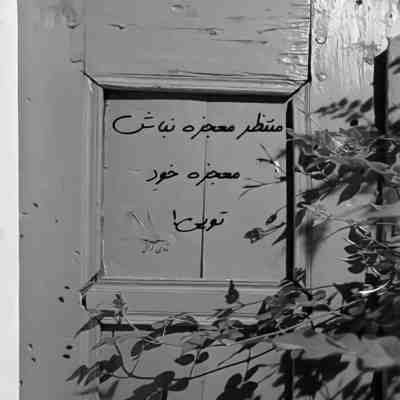 منتظر معجزه نباش
معجزه خود
تویی!